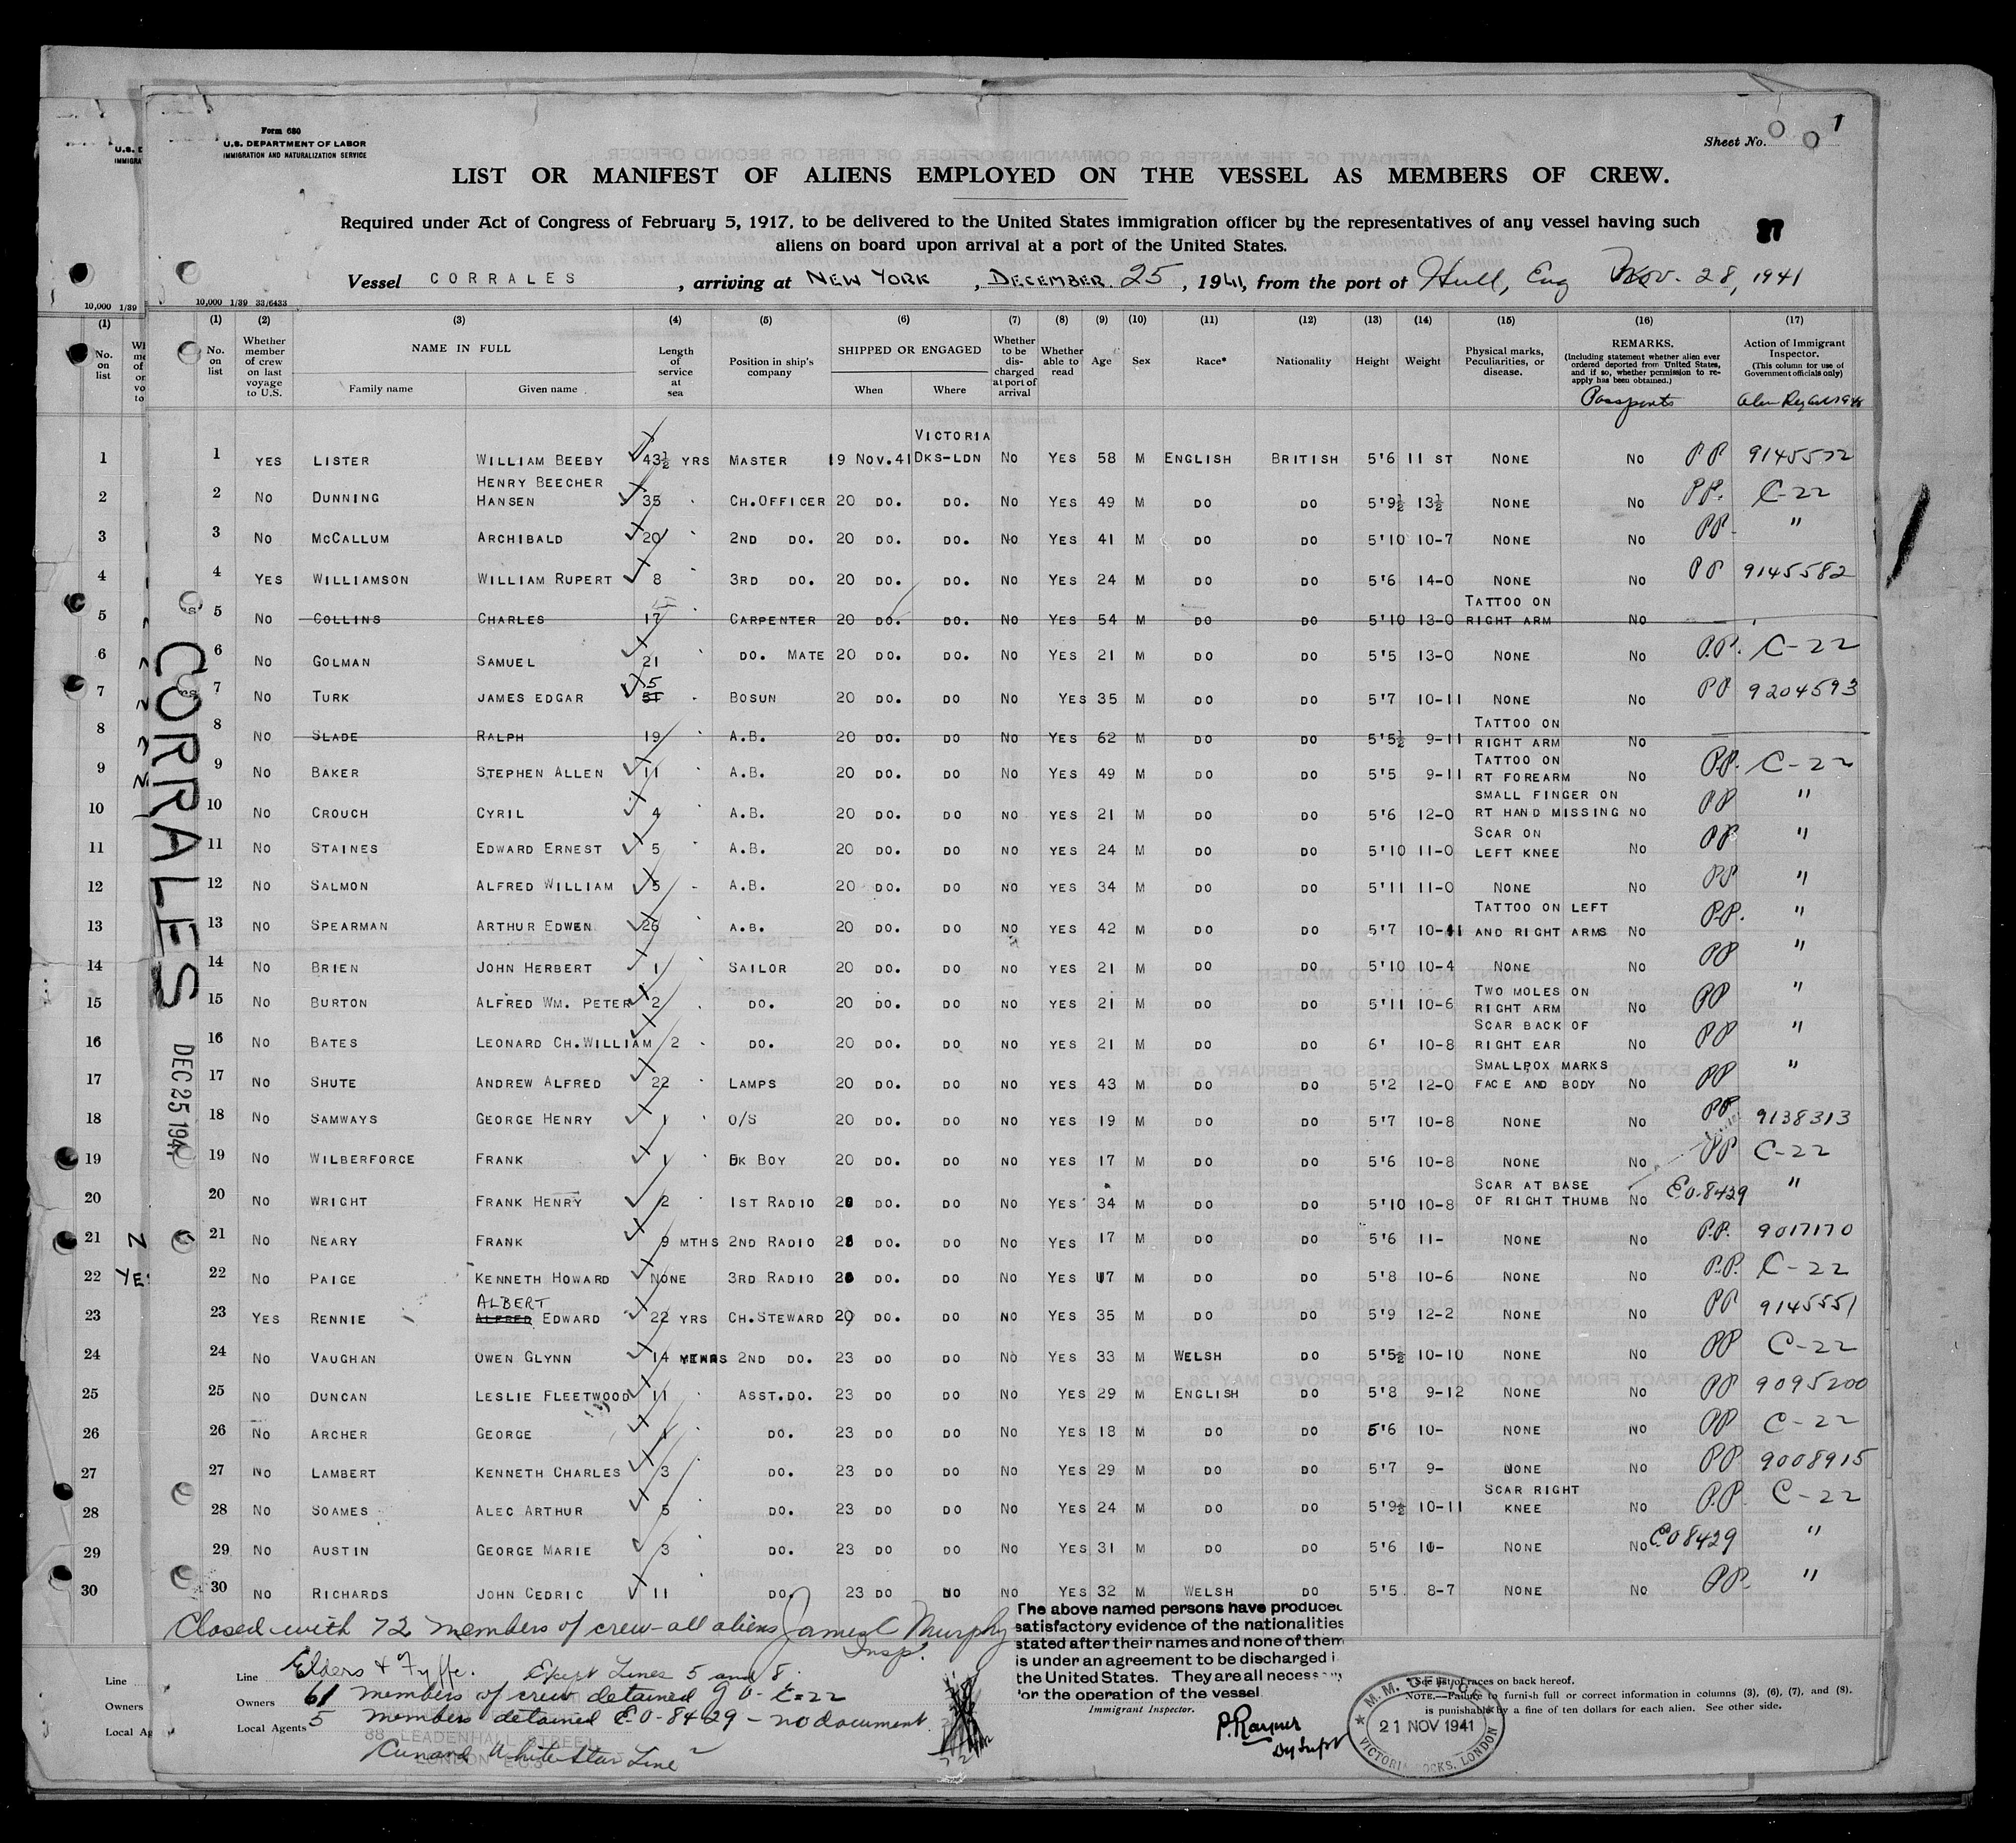 Form 680
U.S. DEPARTMENT OF LABOR
IMMIGRATION AND NATURALIZATION SERVICE
Sheet No. 1
LIST OR MANIFEST OF ALIENS EMPLOYED ON THE VESSEL AS MEMBERS OF CREW.
Required under Act of Congress of February 5, 1917, to be delivered to the United States immigration officer by the representatives of any vessel having such
aliens on board upon arrival at a port of the United States.
Vessel CORRALES, arriving at NEW YORK, DECEMBER 25, 1941, from the port of Hull, Eng Nov. 28, 1941
10,000 1/39 33/6433
(1) (2) (3) (4) (5) (6) (7) (8) (9) (10) (11) (12) (13) (14) (15) (16) (17)
No. on list | Whether member of crew on last voyage to U.S. | NAME IN FULL Family name Given name | Length of service at sea | Position in ship's company | SHIPPED OR ENGAGED When Where | Whether to be discharged at port of arrival | Whether able to read | Age | Sex | Race* | Nationality | Height | Weight | Physical marks, Peculiarities, or disease. | REMARKS. (Including statement whether alien ever ordered deported from United States, and if so, whether permission to reapply has been obtained.) Passports | Action of Immigrant Inspector. (This column for use of Government officials only)
1 YES LISTER WILLIAM BEEBY 43½ YRS MASTER 19 NOV.41 VICTORIA DKS-LDN NO YES 58 M ENGLISH BRITISH 5'6 11 ST NONE NO PP 9145572
2 NO DUNNING HENRY BEECHER HANSEN 35 CH.OFFICER 20 DO. DO. NO YES 49 M DO DO 5'9½ 13½ NONE NO PP. C-22
3 NO MCCALLUM ARCHIBALD 20 2ND DO. 20 DO. DO. NO YES 41 M DO DO 5'10 10-7 NONE NO PP. "
4 YES WILLIAMSON WILLIAM RUPERT 8 3RD DO. 20 DO. DO. NO YES 24 M DO DO 5'6 14-0 NONE NO PP 9145582
5 NO COLLINS CHARLES 17 CARPENTER 20 DO. DO. NO YES 54 M DO DO 5'10 13-0 TATTOO ON RIGHT ARM NO
6 NO GOLMAN SAMUEL 21 DO. MATE 20 DO. DO. NO YES 21 M DO DO 5'5 13-0 NONE NO P.P. C-22
7 NO TURK JAMES EDGAR 5 BOSUN 20 DO. DO NO YES 35 M DO DO 5'7 10-11 NONE NO PP 9204593
8 NO SLADE RALPH 19 A.B. 20 DO. DO NO YES 62 M DO DO 5'5½ 9-11 TATTOO ON RIGHT ARM NO
9 NO BAKER STEPHEN ALLEN 11 A.B. 20 DO. DO NO YES 49 M DO DO 5'5 9-11 TATTOO ON RT FOREARM NO P.P. C-22
10 NO CROUCH CYRIL 4 A.B. 20 DO. DO NO YES 21 M DO DO 5'6 12-0 SMALL FINGER ON RT HAND MISSING NO PP "
11 NO STAINES EDWARD ERNEST 5 A.B. 20 DO. DO NO YES 24 M DO DO 5'10 11-0 SCAR ON LEFT KNEE NO PP "
12 NO SALMON ALFRED WILLIAM 5 A.B. 20 DO. DO NO YES 34 M DO DO 5'11 11-0 NONE NO PP "
13 NO SPEARMAN ARTHUR EDWEN 26 A.B. 20 DO. DO NO YES 42 M DO DO 5'7 10-11 TATTOO ON LEFT AND RIGHT ARMS NO P.P. "
14 NO BRIEN JOHN HERBERT 1 SAILOR 20 DO. DO NO YES 21 M DO DO 5'10 10-4 NONE NO PP "
15 NO BURTON ALFRED WM. PETER 2 DO. 20 DO. DO NO YES 21 M DO DO 5'11 10-6 TWO MOLES ON RIGHT ARM NO PP "
16 NO BATES LEONARD CH.WILLIAM 2 DO. 20 DO. DO NO YES 21 M DO DO 6' 10-8 SCAR BACK OF RIGHT EAR NO PP "
17 NO SHUTE ANDREW ALFRED 22 LAMPS 20 DO. DO NO YES 43 M DO DO 5'2 12-0 SMALLPOX MARKS FACE AND BODY NO PP "
18 NO SAMWAYS GEORGE HENRY 1 O/S 20 DO. DO NO YES 19 M DO DO 5'7 10-8 NONE NO PP 9138313
19 NO WILBERFORCE FRANK 1 DK BOY 20 DO. DO NO YES 17 M DO DO 5'6 10-8 NONE NO PP C-22
20 NO WRIGHT FRANK HENRY 2 1ST RADIO 20 DO. DO NO YES 34 M DO DO 5'10 10-8 SCAR AT BASE OF RIGHT THUMB NO E.O.8429 "
21 NO NEARY FRANK 9 MTHS 2ND RADIO DO. DO NO YES 17 M DO DO 5'6 11- NONE NO P.P. 9017170
22 NO PAIGE KENNETH HOWARD NONE 3RD RADIO 20 DO. DO NO YES 17 M DO DO 5'8 10-6 NONE NO P.P. C-22
23 YES RENNIE ALBERT ALFRED EDWARD 22 YRS CH.STEWARD 20 DO. DO NO YES 35 M DO DO 5'9 12-2 NONE NO PP 9145551
24 NO VAUGHAN OWEN GLYNN 14 YEARS 2ND DO. 23 DO DO NO YES 33 M WELSH DO 5'5½ 10-10 NONE NO PP C-22
25 NO DUNCAN LESLIE FLEETWOOD 11 ASST.DO. 23 DO DO NO YES 29 M ENGLISH DO 5'8 9-12 NONE NO PP 9095200
26 NO ARCHER GEORGE 1 DO. 23 DO DO NO YES 18 M DO DO 5'6 10- NONE NO PP C-22
27 NO LAMBERT KENNETH CHARLES 3 DO. 23 DO DO NO YES 29 M DO DO 5'7 9- NONE NO PP 9008915
28 NO SOAMES ALEC ARTHUR 5 DO. 23 DO DO NO YES 24 M DO DO 5'9½ 10-11 SCAR RIGHT KNEE NO P.P. C-22
29 NO AUSTIN GEORGE MARIE 3 DO. 23 DO DO NO YES 31 M DO DO 5'6 10- NONE NO E.O 8429 "
30 NO RICHARDS JOHN CEDRIC 11 DO. 23 DO DO NO YES 32 M WELSH DO 5'5 8-7 NONE NO PP. "
CORRALES
DEC 25 1941
Closed with 72 members of crew - all aliens James C Murphy
Insp.
Line Elders & Fyffe. Except Lines 5 and 8.
Owners 61 members of crew detained 9 U- C-22
Local Agents 5 members detained E.O-8429 - no document.
88 LEADENHALL STREET
LONDON E.C.3
Cunard White Star Line
The above named persons have produced
satisfactory evidence of the nationalities
stated after their names and none of them
is under an agreement to be discharged i
the United States. They are all necess
for the operation of the vessel
Immigrant Inspector.
P. Rayner
Dy Supt
M.M. OFFICE
21 NOV 1941
VICTORIA DOCKS, LONDON
See list of races on back hereof.
NOTE.—Failure to furnish full or correct information in columns (3), (6), (7), and (8),
is punishable by a fine of ten dollars for each alien. See other side.